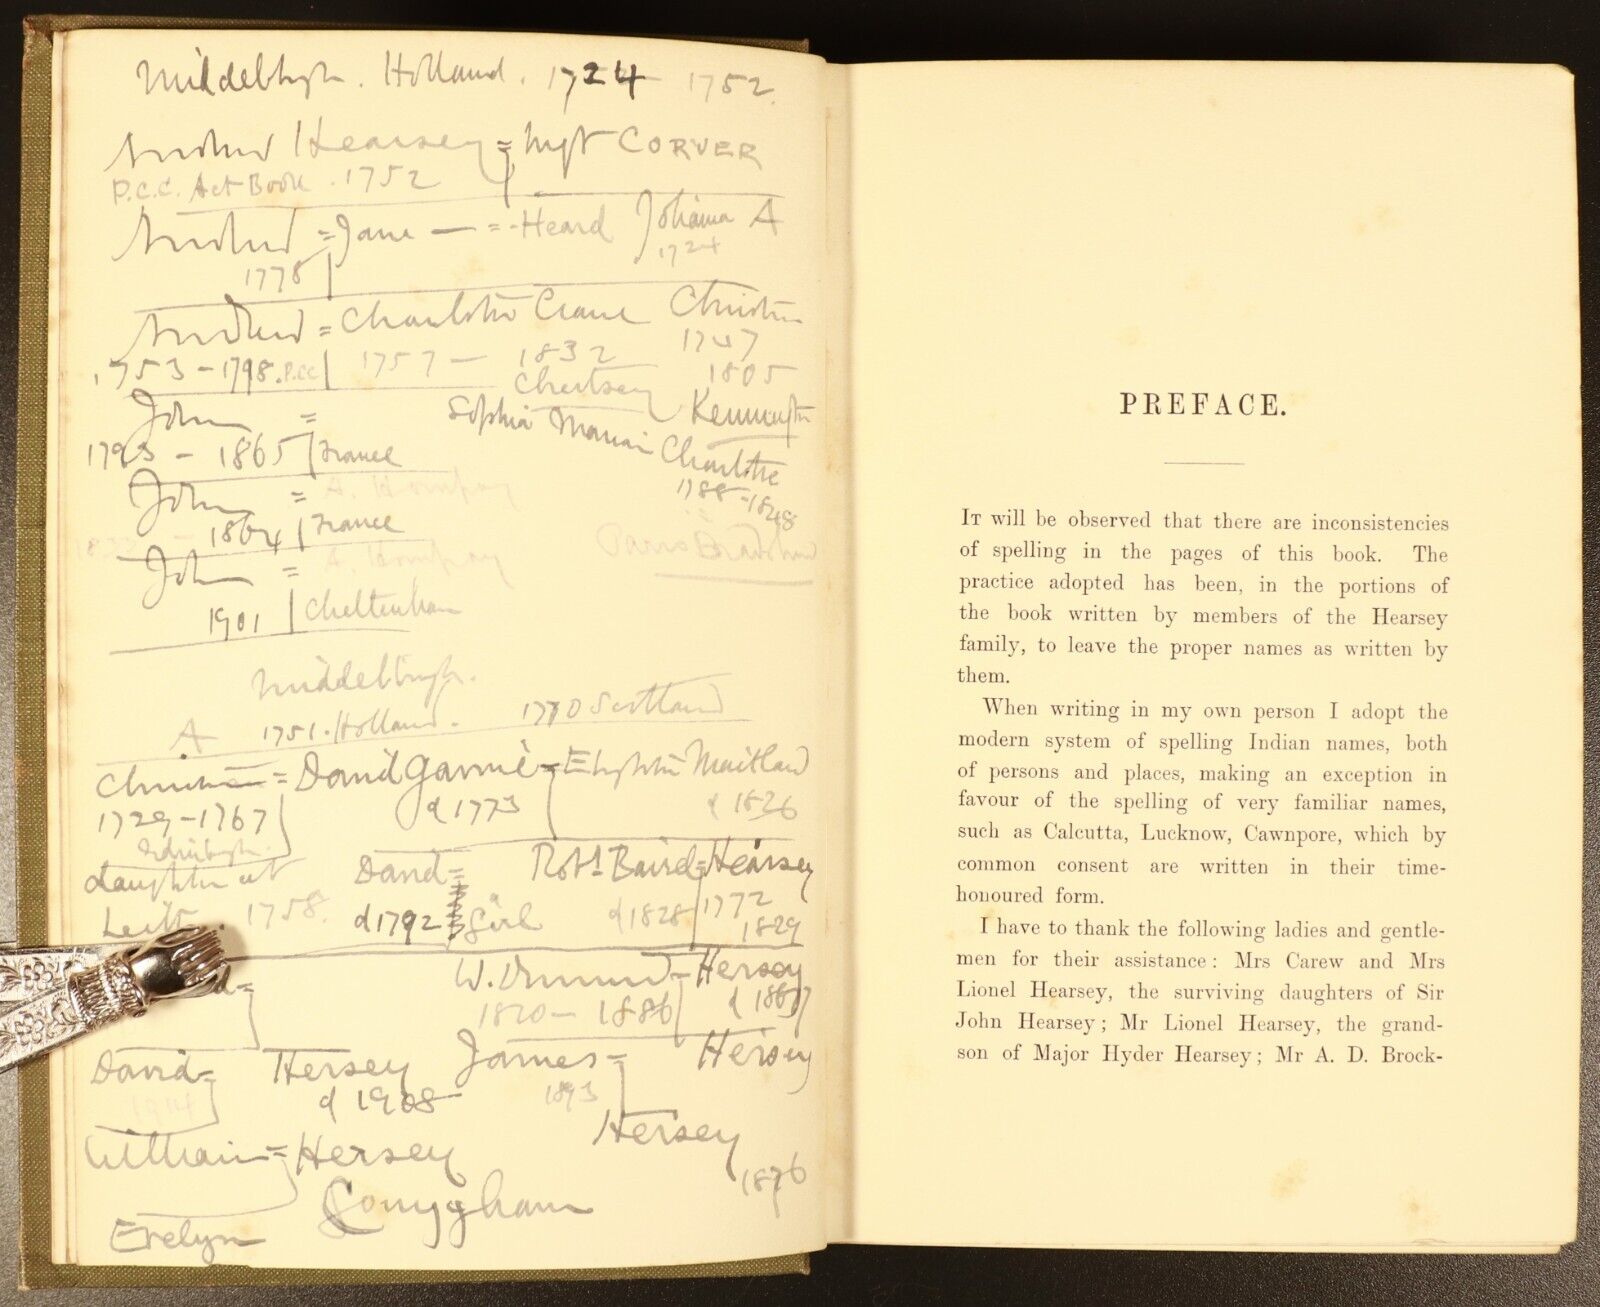 Holland. 1724 - 1752.
Hearsey = CORVER
P.C.C. Act Book. 1752
= Jane — = Heard Johanna A
1724
1778
= Charlotte Crane
1753 - 1798. P.CC 1757 — 1832 1747
Chertsey 1805
John = Sophia
1793 - 1865 France Charlotte
1788-1848
John =
- 1864 France
John =
1901 Cheltenham
A 1751. Holland. 1770 Scotland
= David = Maitland
1729-1767 d 1773 d 1826
Edinburgh.
daughter at David = Robt Baird = Hearsey
Leith. 1758. d 1792 Girl d 1828 1772
1829
W. = Hersey
1820 - 1886
David = Hersey James = Hersey
1914 d 1908 1893
Hersey
William = Hersey
1876
Conyngham
Evelyn
PREFACE.
IT will be observed that there are inconsistencies
of spelling in the pages of this book. The
practice adopted has been, in the portions of
the book written by members of the Hearsey
family, to leave the proper names as written by
them.
When writing in my own person I adopt the
modern system of spelling Indian names, both
of persons and places, making an exception in
favour of the spelling of very familiar names,
such as Calcutta, Lucknow, Cawnpore, which by
common consent are written in their time-
honoured form.
I have to thank the following ladies and gentle-
men for their assistance: Mrs Carew and Mrs
Lionel Hearsey, the surviving daughters of Sir
John Hearsey; Mr Lionel Hearsey, the grand-
son of Major Hyder Hearsey; Mr A. D. Brock-